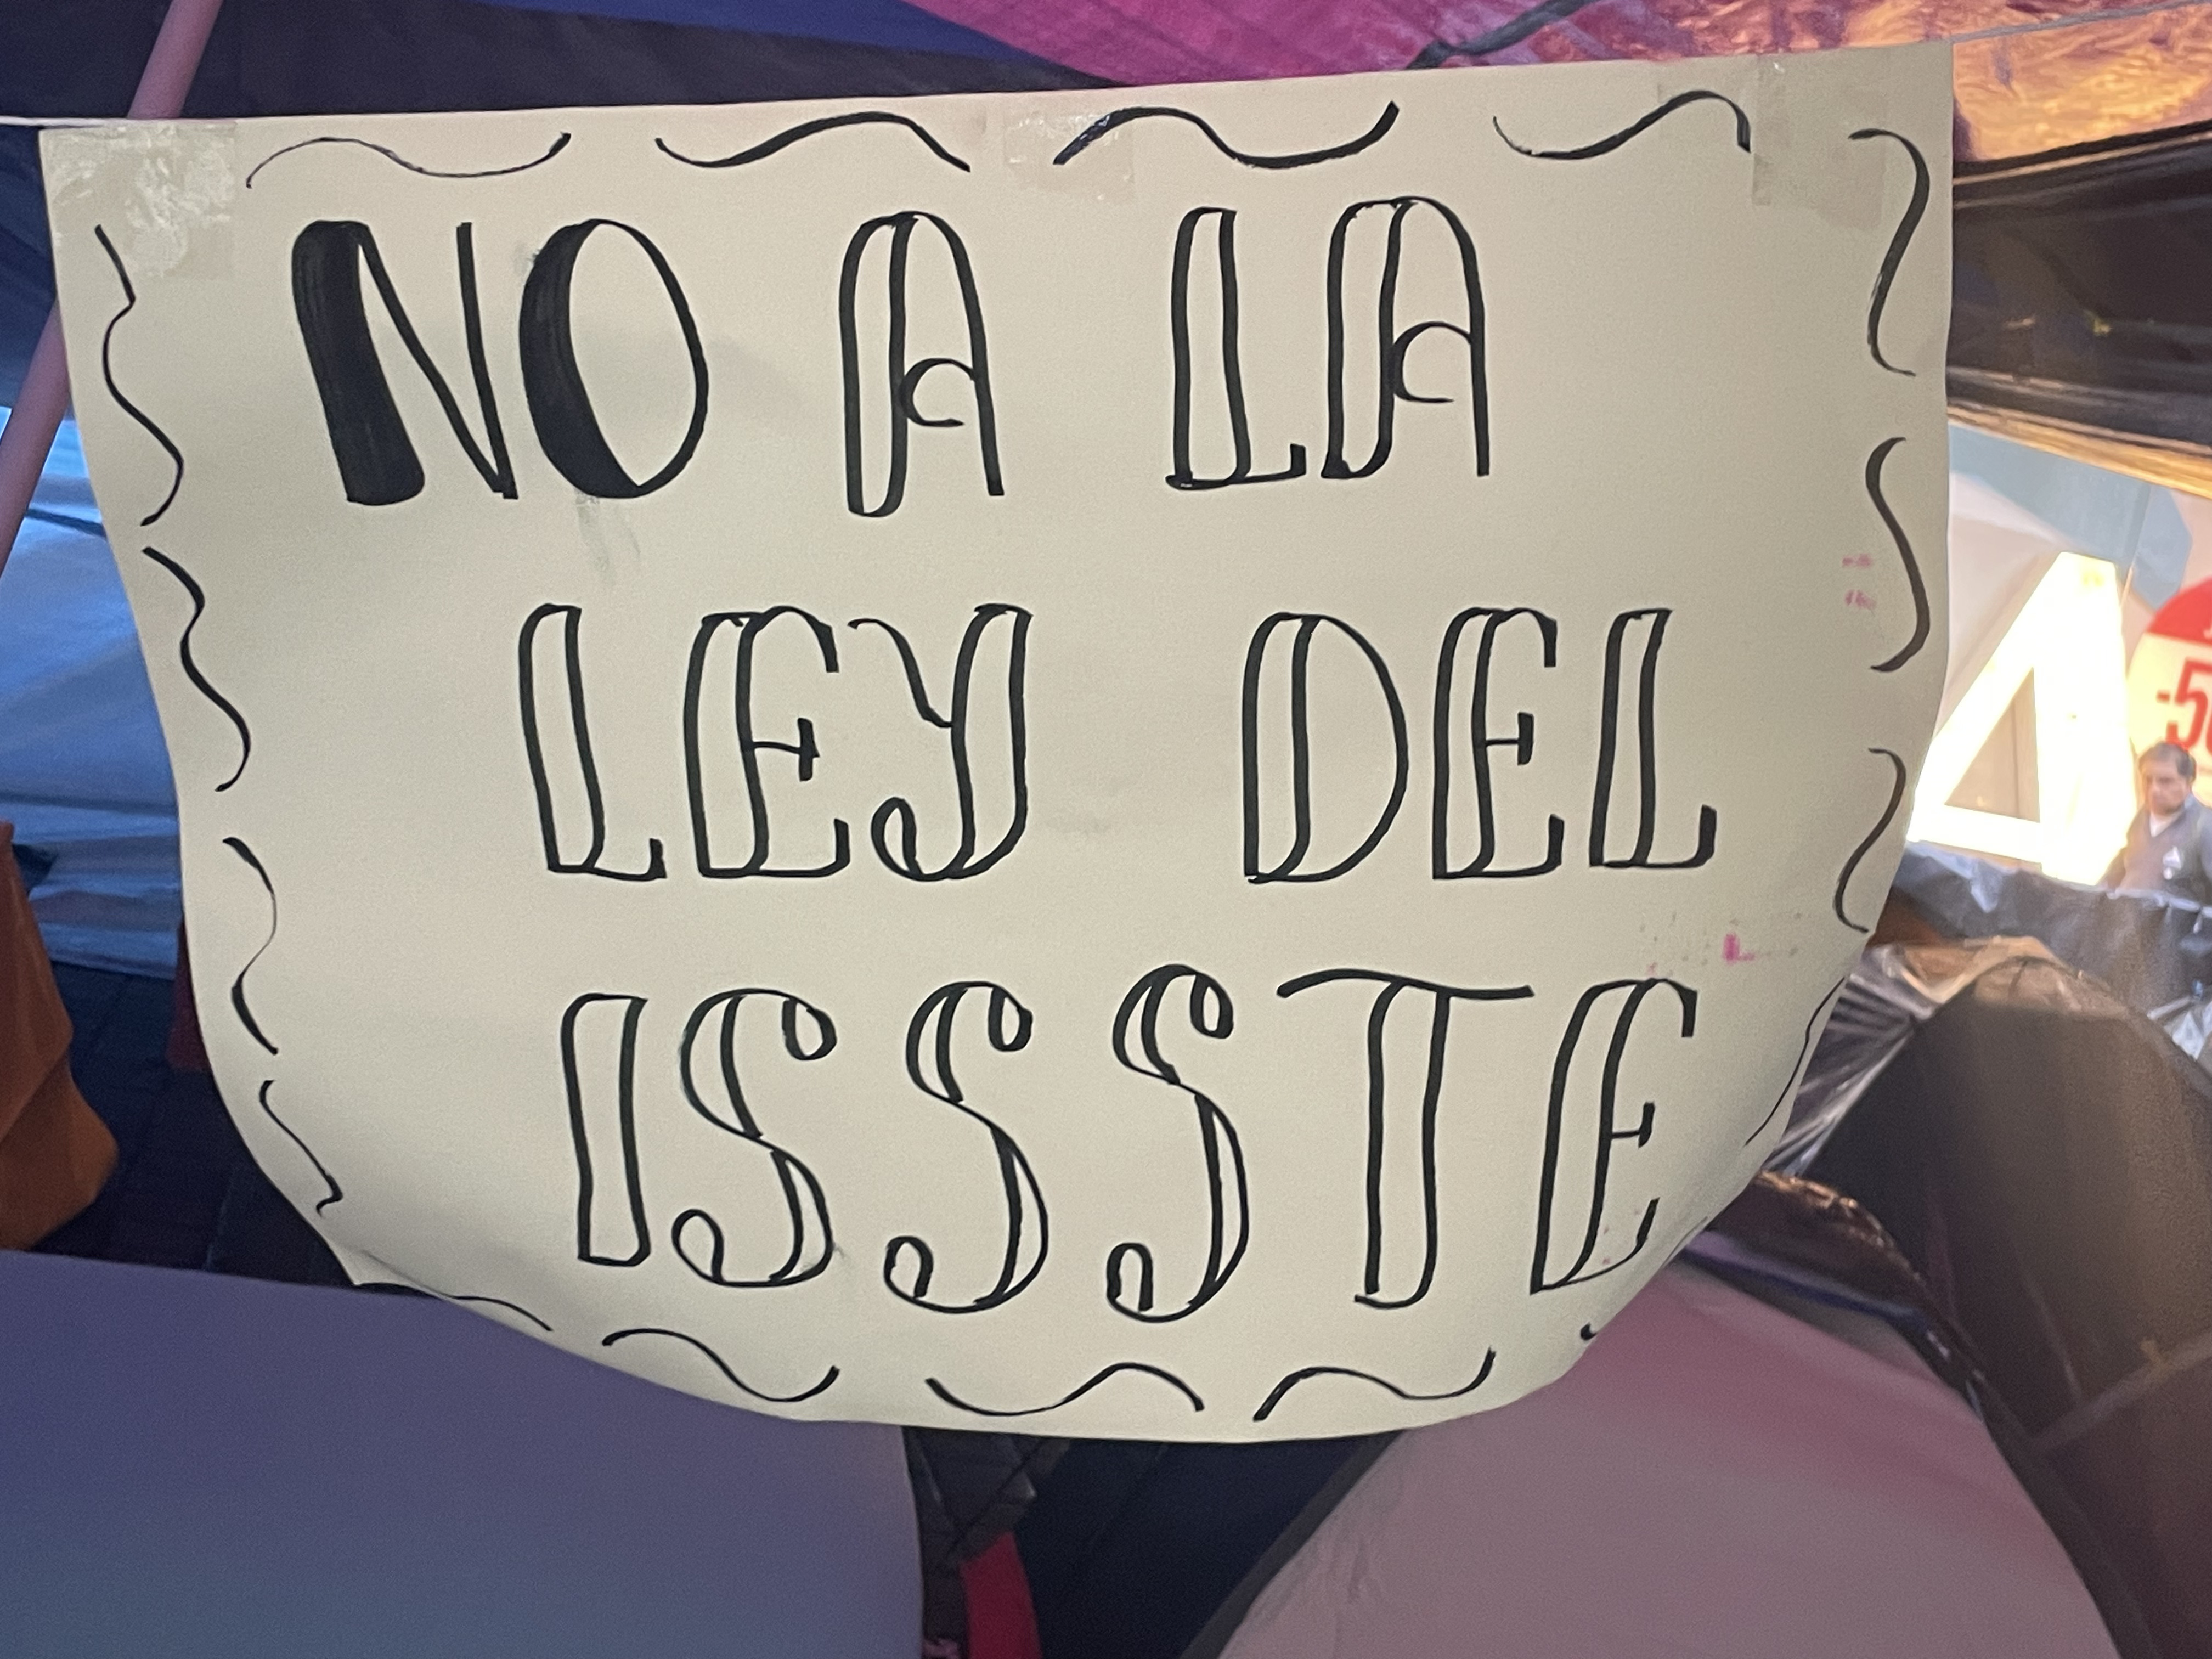 NO A LA
LEY DEL
ISSSTE